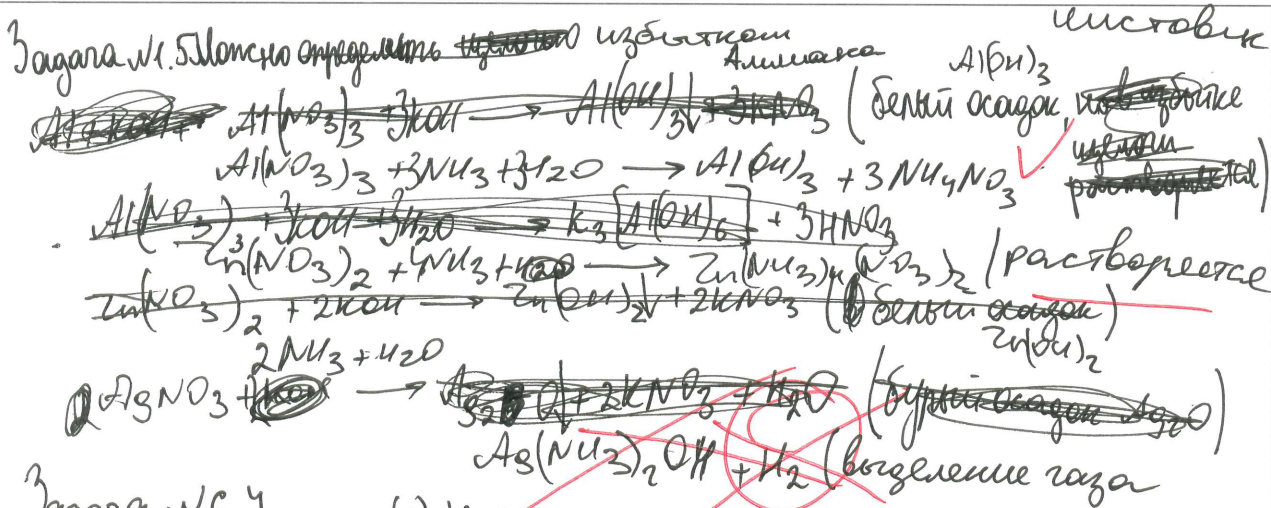 чистовик
Задача №1. 5 Можно определить избытком Аммиака
Al(NO3)3 + 3KOH → Al(OH)3↓ + 3KNO3 (белый осадок Al(OH)3, но в избытке
щелочи
растворяется)
Al(NO3)3 + 3NH3 + 3H2O → Al(OH)3 + 3NH4NO3
Al(NO3)3 + 3KOH + 3H2O → K3[Al(OH)6] + 3HNO3
Zn(NO3)2 + 4NH3 + H2O → Zn(NH3)4(NO3)2 (растворяется
Zn(NO3)2 + 2KOH → Zn(OH)2↓ + 2KNO3 (белый осадок)
Zn(OH)2
2NH3 + H2O
2AgNO3 + KOH → Ag2O↓ + 2KNO3 + H2O (бурый осадок Ag2O)
Ag(NH3)2OH + H2 (выделение газа
Задача №